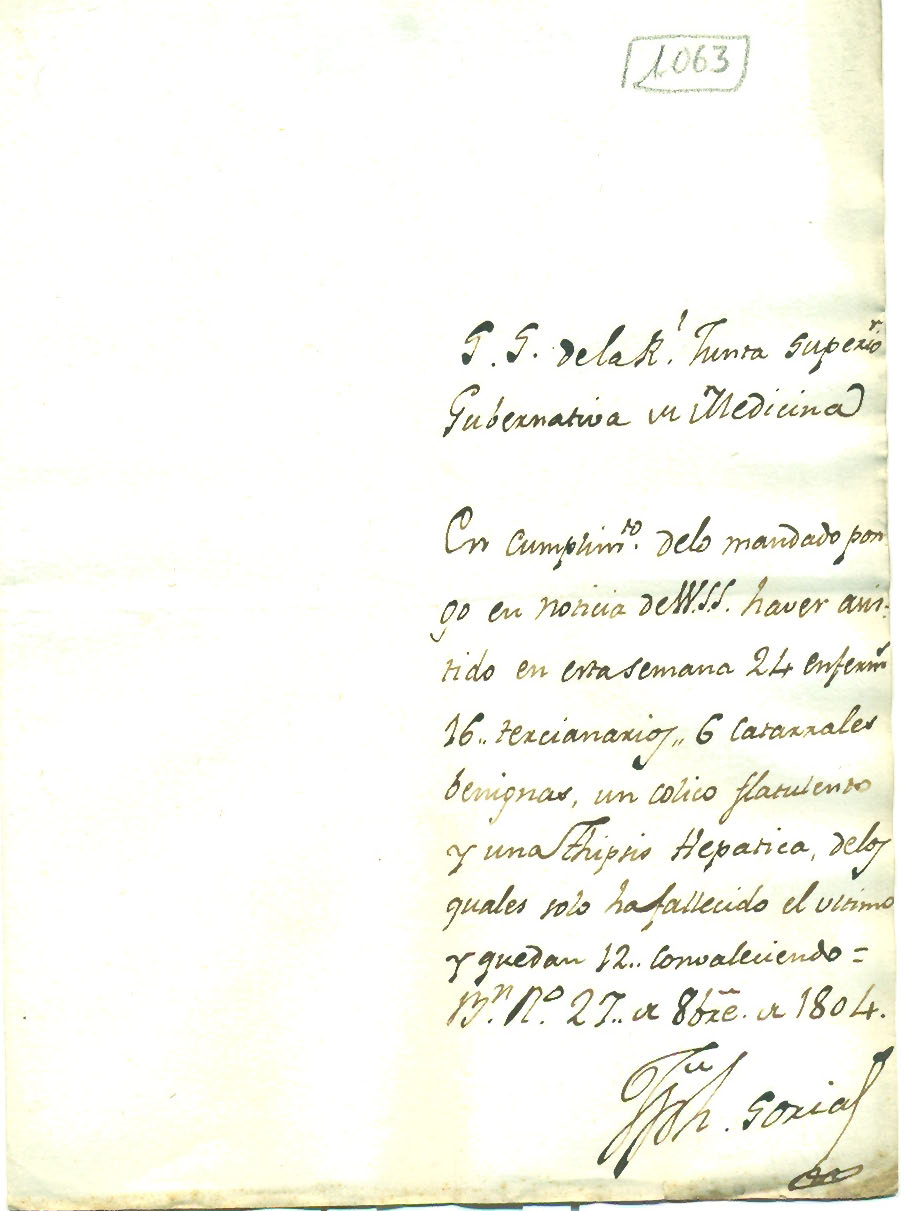 1063
S. S. dela Rl. Junta Superior
Gubernativa de Medicina
En cumplimto. delo mandado pon-
go en noticia de VV.SS. haver asis-
tido en esta semana 24 enfermos
16.. tercianarios,, 6 Catarrales
benignas, un colico flatulento
y una Thipsis Hepatica, delos
quales solo ha fallecido el ultimo
y quedan 12.. Convaleciendo =
Bn. Ro. 27.. de 8bre. de 1804.
Jph. Soria